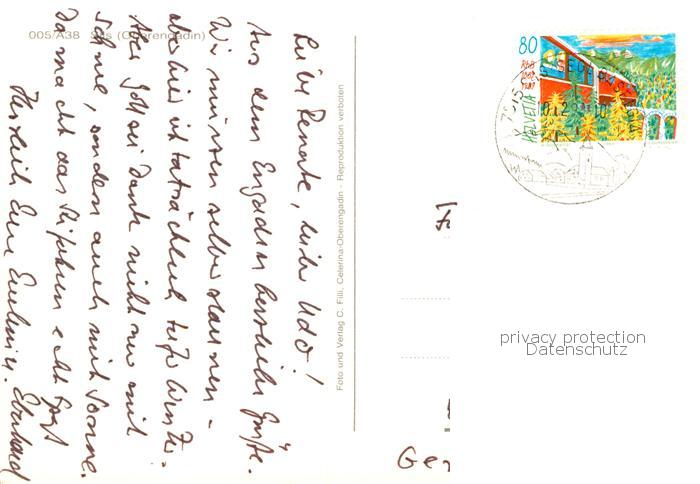 005/A38 Sils (Oberengadin)
Liebe Renate, lieber Udo!
Aus dem Engadin herzliche Grüße.
Wir müssen selber staunen -
aber hier ist tatsächlich tiefer Winter.
Aber Gott sei Dank nicht nur mit
Schnee, sondern auch mit Sonne.
Da macht das Skifahren echt Spaß
Herzlich Eure Eberhard
Foto und Verlag C. Filli, Celerina-Oberengadin - Reproduktion verboten
80
RhB
1889
1989
HELVETIA
7515 SILS
privacy protection
Datenschutz
Ger